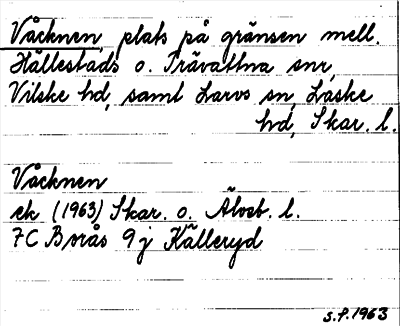 Våcknen, plats på gränsen mell.
Hällestads o. Trävattna snr,
Vilske hd, samt Larvs sn, Laske
hd, Skar. l.
Våcknen
ek (1963) Skar. o. Älvsb. l.
7C Borås 9j Källeryd
S.F. 1963